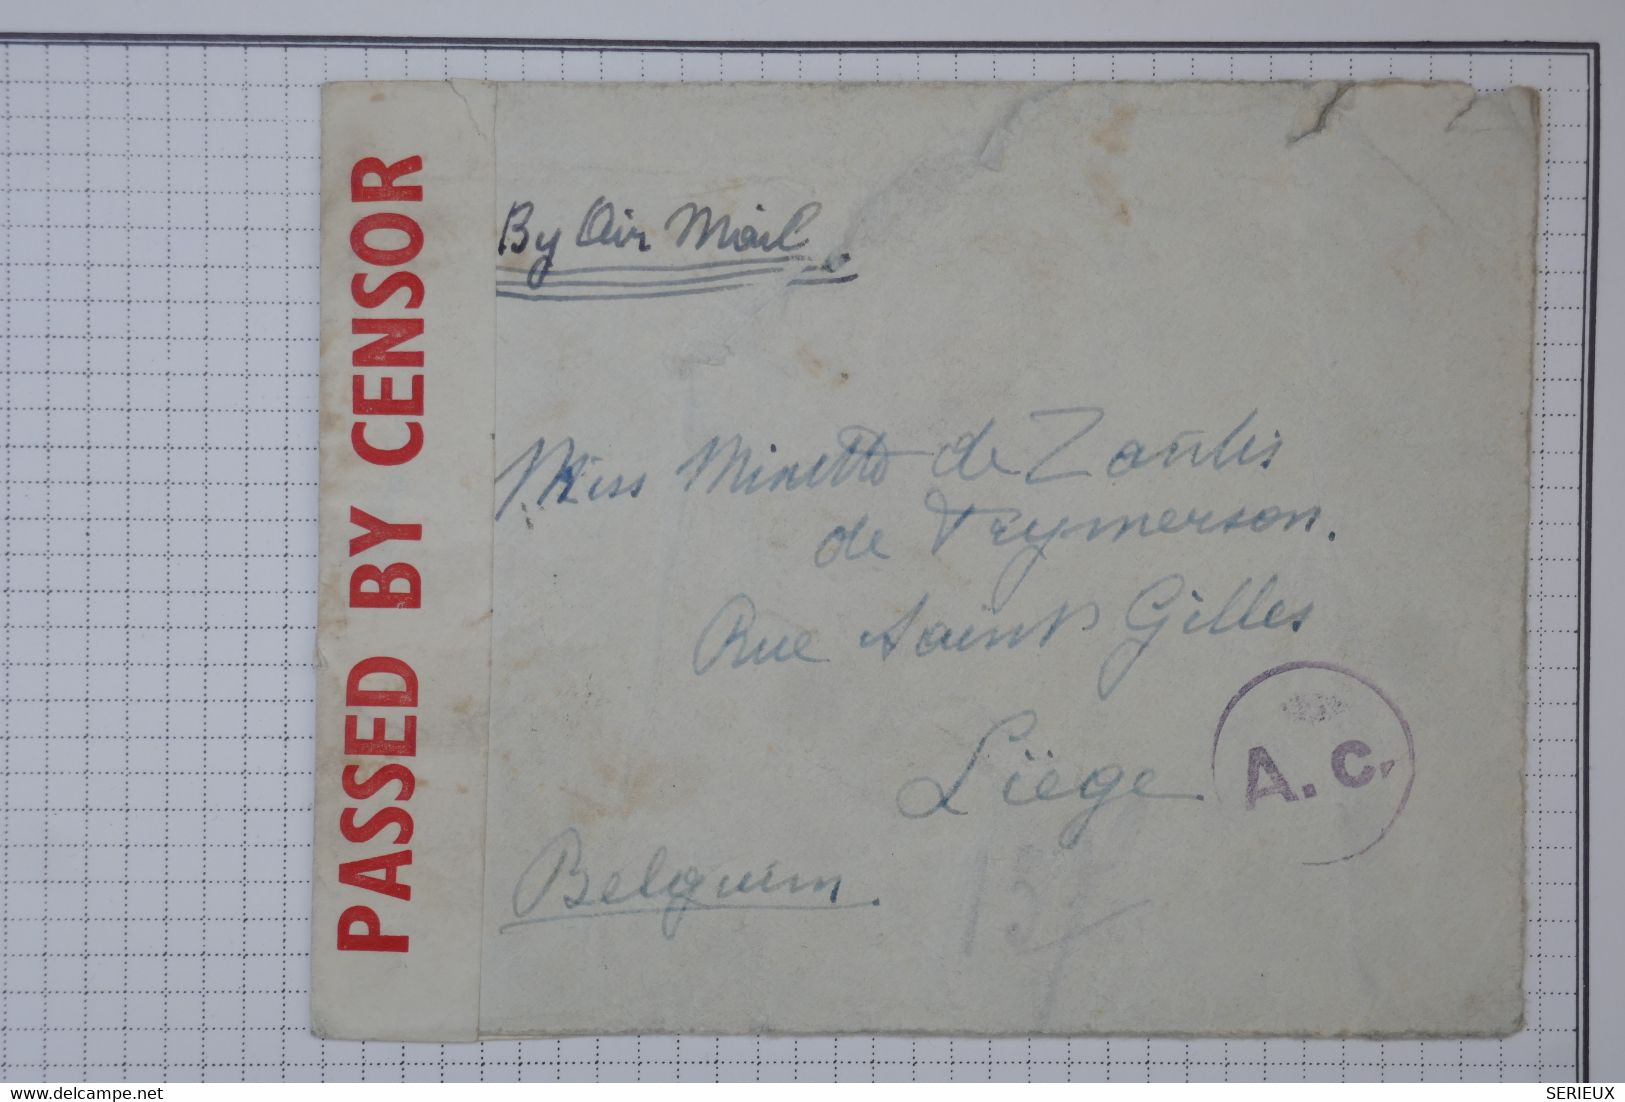 PASSED BY CENSOR
By Air Mail
Miss Minette de Zantis
de Frymerson.
Rue Saint Gilles
Liëge.
Belguim.
A.C.
SERIEUX
www.delcampe.net